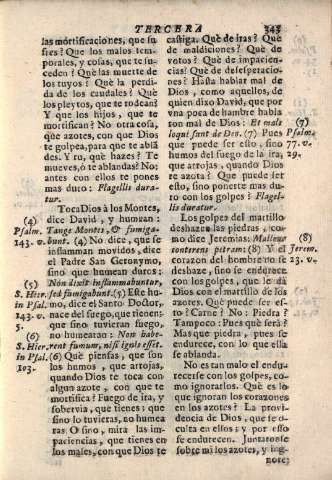 TERCERA 343
las mortificaciones, que su-
fres? Que los malos tem-
porales, y cosas, que te su-
ceden? Què las muerte de
los tuyos? Què la perdi-
da de los caudales? Què
los pleytos, que te rodean?
Y que los hijos, que te
mortifican? No otra cosa,
que azotes, con que Dios
te golpea, para que te ablã
des. Y tu, què hazes? Te
mueves, ò te ablandas? No:
antes con ellos te pones
mas duro: Flagellis dura-
tur.
Toca Dios à los Montes,
(4) dice David, y humean:
Psalm. Tange Montes, & fumiga-
143. v. bunt. (4) No dice, que se
inflamman
movidos, dice
el Padre San Geronymo,
sino que humean duros:
(5) Nõn dixit inflammabuntur,
S. Hier. sed fumigabunt. (5) Este hu-
in Psal. mo, dice el Santo Doctor,
143. v. nace del fuego, que tienen:
5. que sino tuvieran fuego,
(6) no humearan: Non habe-
S. Hier. rent fumum, nisi ignis esset.
in Psal. (6) Que piensas, que son
103. los humos, que arrojas,
quando Dios te toca con
algun azote, con que te
mortifica? Fuego de ira, y
sobervia, que tienes: que
sino lo tuvieras, no humea
ras. O sino, mira las im-
paciencias, que tienes en
los males, con que Dios te
castiga. Què de iras? Què
de maldiciones? Què de
votos? Què de impacien-
cias? Què de desesperacio-
nes? Hasta hablar mal de
Dios, como aquellos, de
quien dixo David, que por
una poca de hambre habla
ton mal de Dios: Et malè (7)
loqui sunt de Deo. (7) Pues Psalm.
que puede ser esto, sino 77. v.
humos del fuego de la ira, 29.
que arrojas, quando Dios
te azota? Que puede ser
esto, sino ponerte mas du-
ro con los golpes? Flagel-
lis duratur.
Los golpes del martillo
deshazes las piedras, co-
mo dice Jeremias: Malleus (8)
conterens petram: (8) Y el Jerem.
corazon del hombre no se 23. v.
deshaze, sino se endurece
con los golpes, que le da
Dios con el martillo de los
azotes. Què puede ser es-
to? Carne? No: Piedra?
Tampoco: Pues què serà?
Mas que piedra, pues se
endurece, con lo que ella
se ablanda.
No es tan malo el endu-
recerse con los golpes, co-
mo ignorarlos. Què es lo
que ignoran los corazones
en los azotes? La provi-
dencia de Dios, que se o-
culta en ellos: y por esso
se endurecen. Juntaronse
sobre mi los azotes, y ing-
norè;